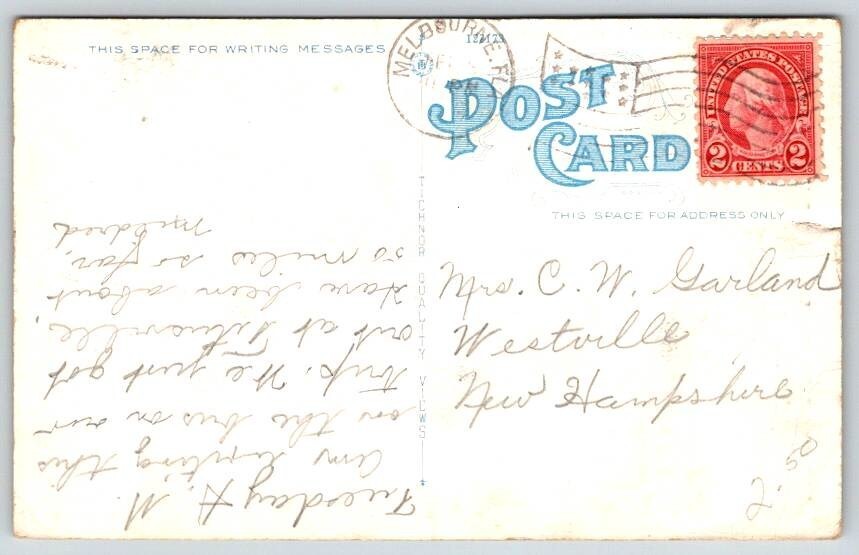 THIS SPACE FOR WRITING MESSAGES
Tuesday A. M.
Am writing this
on the bus on our
trip. We just got
out at Titusville,
Have been about
50 miles so far.
Mildred
TICHNOR QUALITY VIEWS
124173
MELBOURNE, FL
POST
CARD
UNITED STATES POSTAGE
2 CENTS 2
THIS SPACE FOR ADDRESS ONLY
Mrs. C. W. Garland
Westville
New Hampshire
2.50